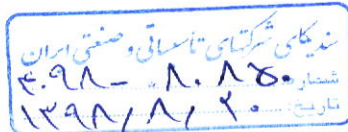 سندیکای شرکتهای تأسیساتی و صنعتی ایران
شماره: ۸۰۸۵۰-۴۰۹۸
تاریخ: ۱۳۹۸/۸/۲۰